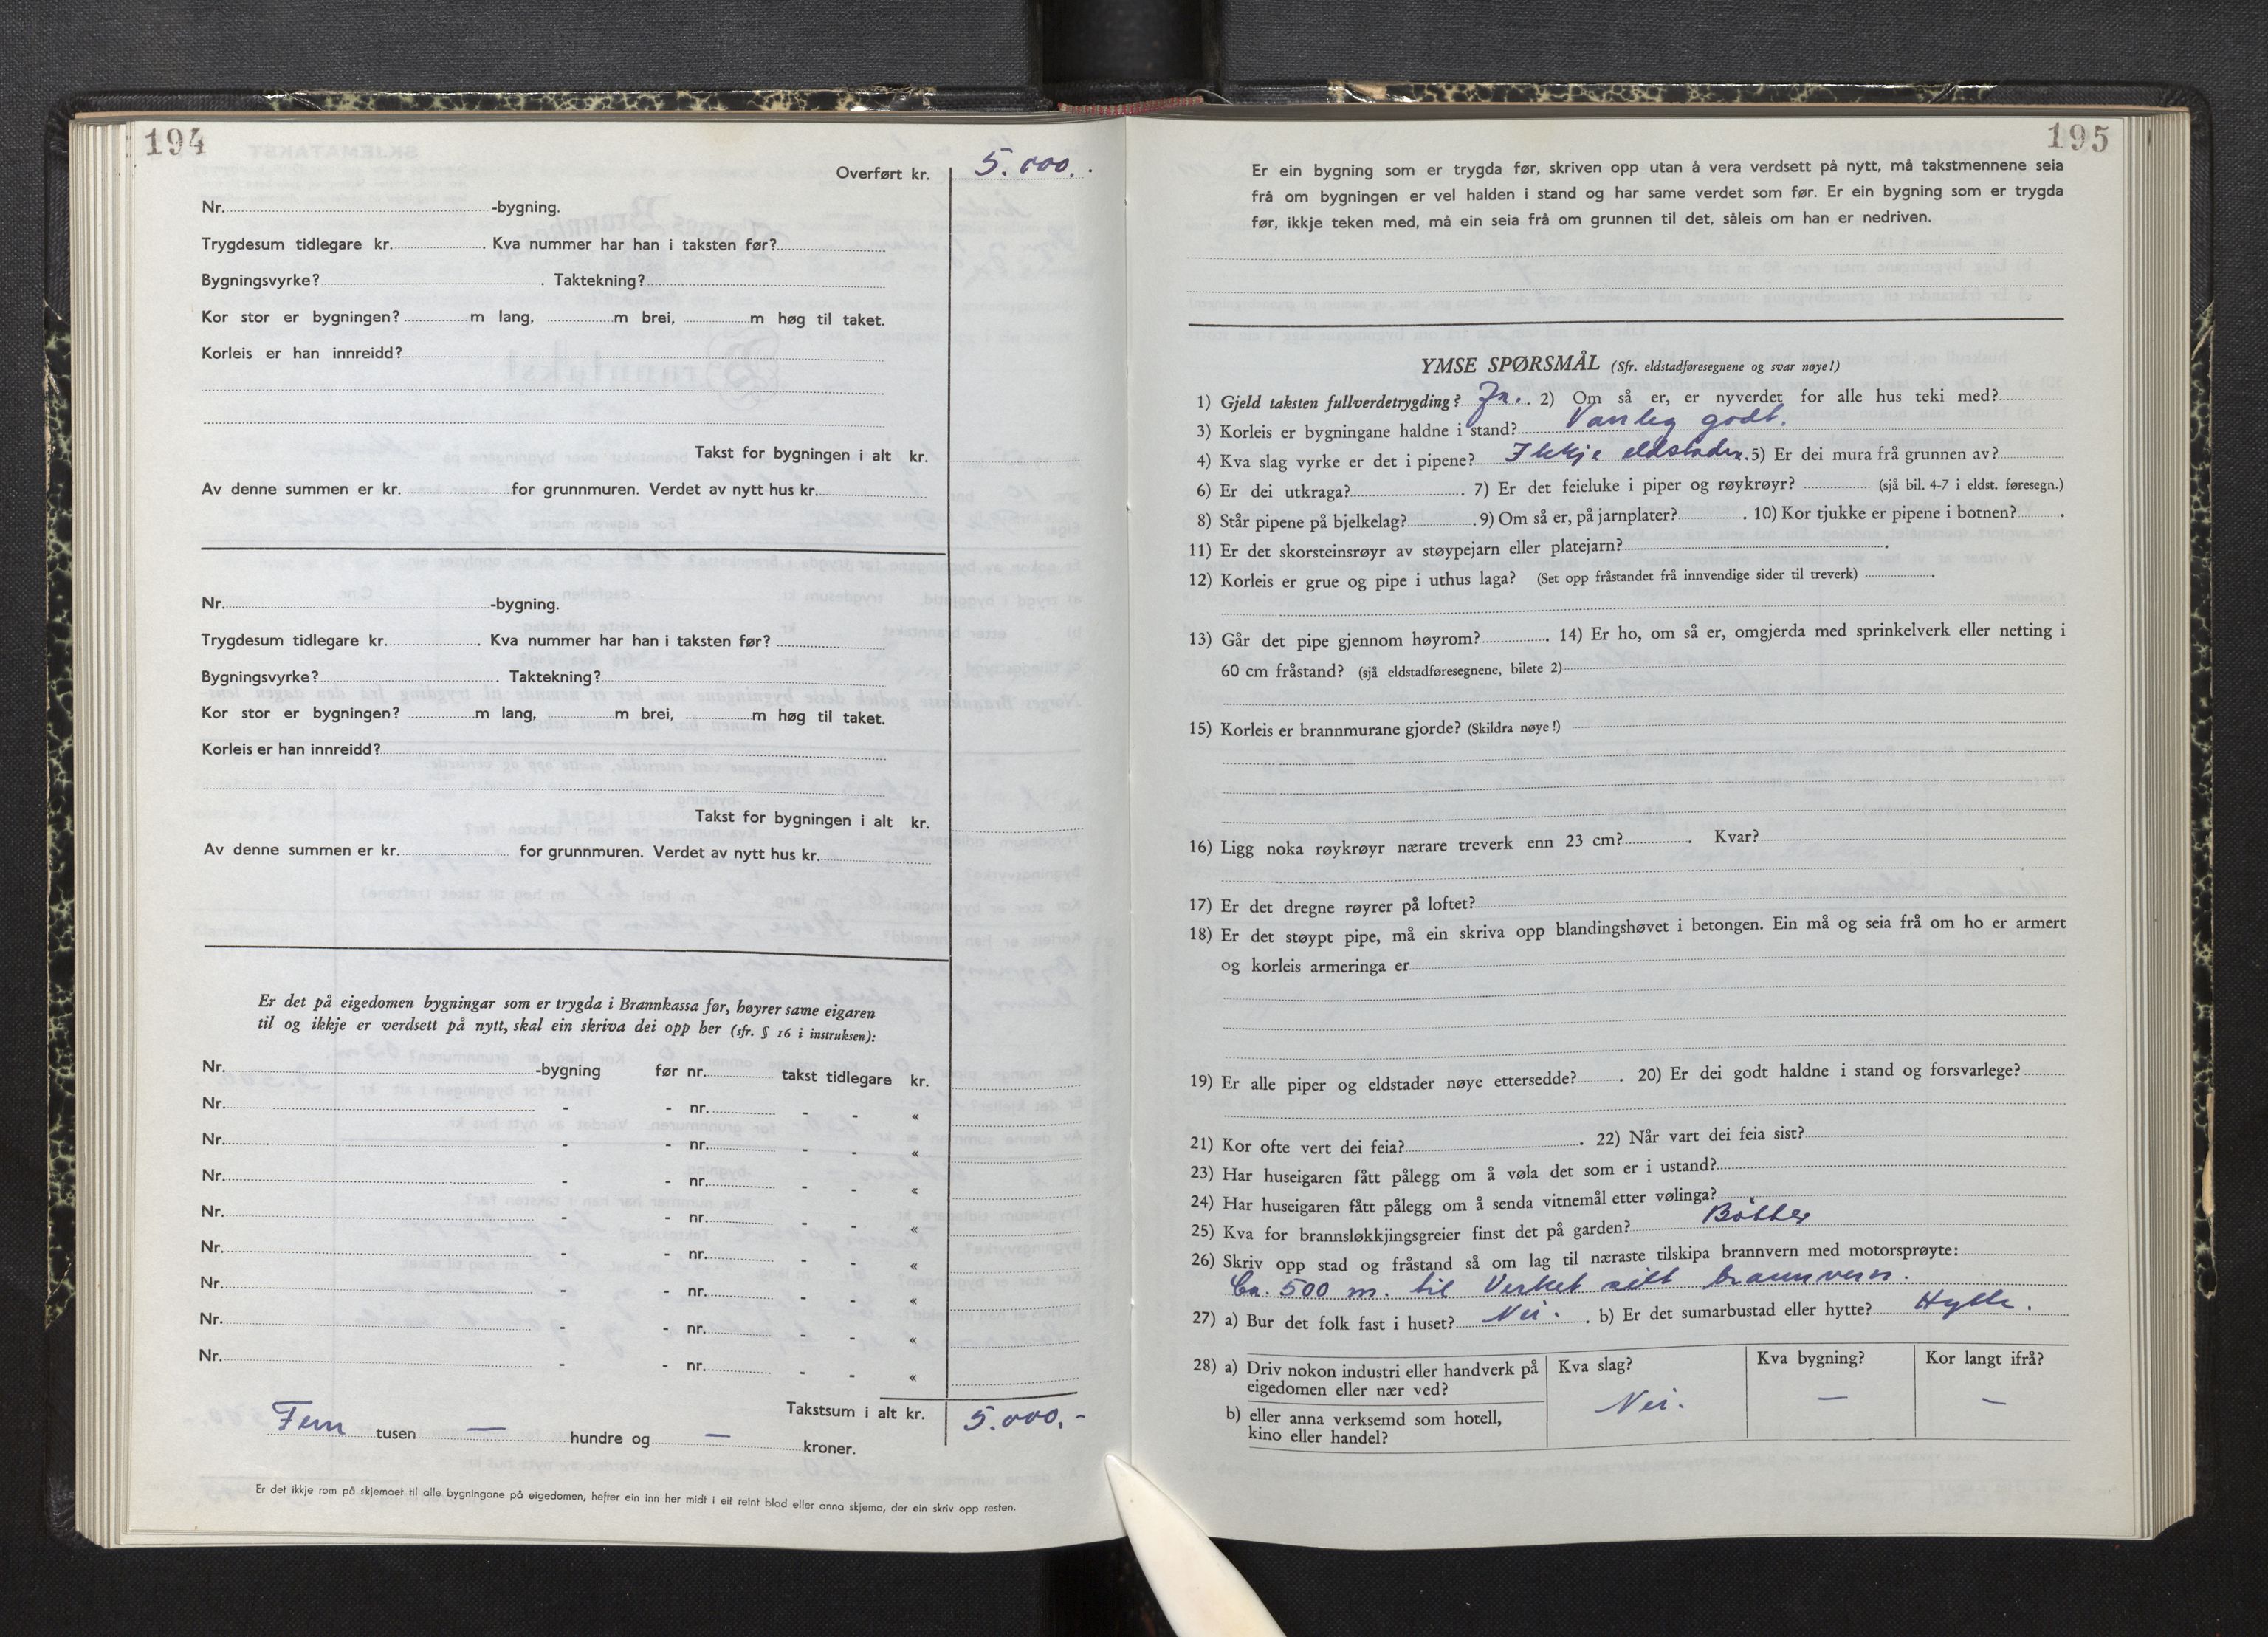 194
Overført kr. 5.000.
Nr. -bygning.
Trygdesum tidlegare kr. . Kva nummer har han i taksten før?
Bygningsvyrke? . Taktekning?
Kor stor er bygningen? m lang, m brei, m høg til taket.
Korleis er han innreidd?
Takst for bygningen i alt kr.
Av denne summen er kr. for grunnmuren. Verdet av nytt hus kr.
Nr. -bygning.
Trygdesum tidlegare kr. . Kva nummer har han i taksten før?
Bygningsvyrke? . Taktekning?
Kor stor er bygningen? m lang, m brei, m høg til taket.
Korleis er han innreidd?
Takst for bygningen i alt kr.
Av denne summen er kr. for grunnmuren. Verdet av nytt hus kr.
Er det på eigedomen bygningar som er trygda i Brannkassa før, høyrer same eigaren
til og ikkje er verdsett på nytt, skal ein skriva dei opp her (sfr. § 16 i instruksen):
Nr. -bygning før nr. takst tidlegare kr.
Nr. - - nr. - - «
Nr. - - nr. - - «
Nr. - - nr. - - «
Nr. - - nr. - - «
Nr. - - nr. - - «
Nr. - - nr. - - «
Nr. - - nr. - - «
Nr. - - nr. - - «
Takstsum i alt kr. 5.000.-
Fem tusen — hundre og — kroner.
Er det ikkje rom på skjemaet til alle bygningane på eigedomen, hefter ein inn her midt i eit reint blad eller anna skjema, der ein skriv opp resten.
195
Er ein bygning som er trygda før, skriven opp utan å vera verdsett på nytt, må takstmennene seia
frå om bygningen er vel halden i stand og har same verdet som før. Er ein bygning som er trygda
før, ikkje teken med, må ein seia frå om grunnen til det, såleis om han er nedriven.
YMSE SPØRSMÅL (Sfr. eldstadføresegnene og svar nøye!)
1) Gjeld taksten fullverdetrygding? Ja. . 2) Om så er, er nyverdet for alle hus teki med?
3) Korleis er bygningane haldne i stand? Vanleg godt.
4) Kva slag vyrke er det i pipene? Ikkje eldstader. 5) Er dei mura frå grunnen av?
6) Er dei utkraga? . 7) Er det feieluke i piper og røykrøyr? (sjå bil. 4-7 i eldst. føresegn.)
8) Står pipene på bjelkelag? . 9) Om så er, på jarnplater? . 10) Kor tjukke er pipene i botnen? .
11) Er det skorsteinsrøyr av støypejarn eller platejarn? .
12) Korleis er grue og pipe i uthus laga? (Set opp fråstandet frå innvendige sider til treverk) .
13) Går det pipe gjennom høyrom? . 14) Er ho, om så er, omgjerda med sprinkelverk eller netting i
60 cm fråstand? (sjå eldstadføresegnene, bilete 2)
15) Korleis er brannmurane gjorde? (Skildra nøye!)
16) Ligg noka røykrøyr nærare treverk enn 23 cm? . Kvar?
17) Er det dregne røyrer på loftet?
18) Er det støypt pipe, må ein skriva opp blandingshøvet i betongen. Ein må og seia frå om ho er armert
og korleis armeringa er
19) Er alle piper og eldstader nøye ettersedde? . 20) Er dei godt haldne i stand og forsvarlege?
21) Kor ofte vert dei feia? . 22) Når vart dei feia sist?
23) Har huseigaren fått pålegg om å vøla det som er i ustand?
24) Har huseigaren fått pålegg om å senda vitnemål etter vølinga?
25) Kva for brannsløkkjingsgreier finst det på garden? Bøtter
26) Skriv opp stad og fråstand så om lag til næraste tilskipa brannvern med motorsprøyte:
Ca. 500 m. til Verket sitt brannvern.
27) a) Bur det folk fast i huset? Nei. . b) Er det sumarbustad eller hytte? Hytte.
28) a) Driv nokon industri eller handverk på Kva slag? Kva bygning? Kor langt ifrå?
eigedomen eller nær ved?
Nei. — —
b) eller anna verksemd som hotell,
kino eller handel?